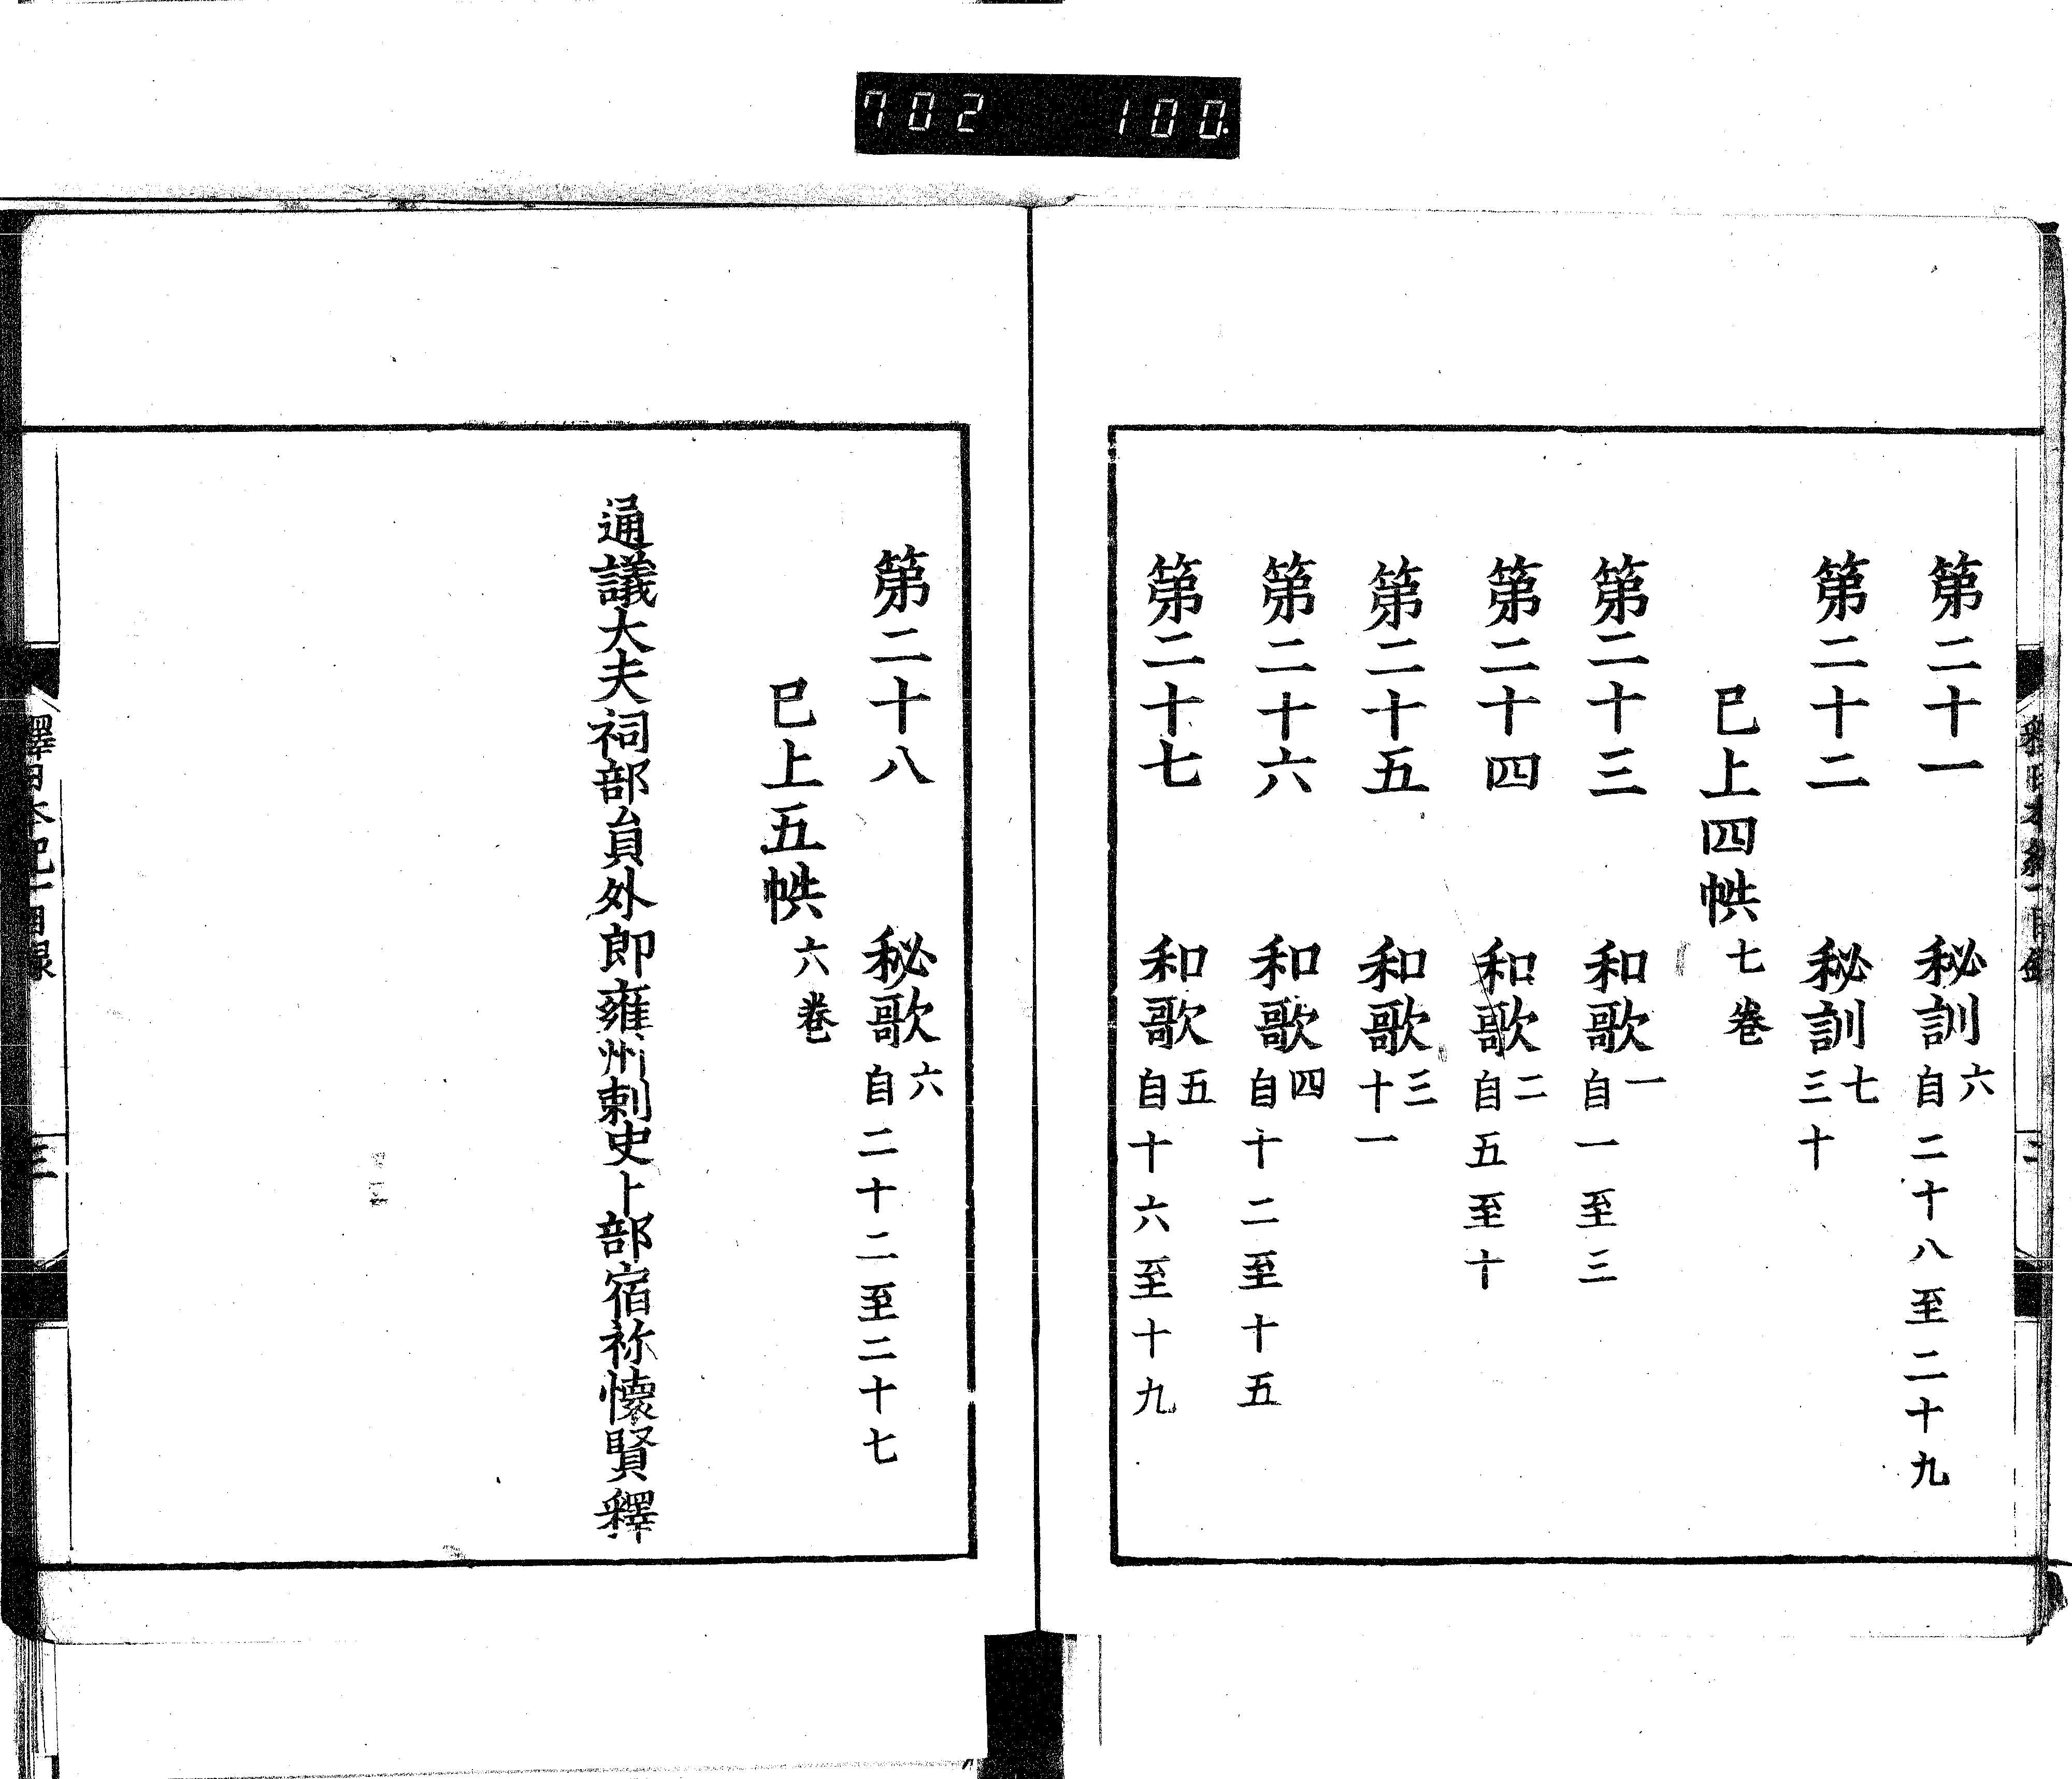 702 100.
第二十一 秘訓六 自二十八至二十九
第二十二 秘訓七 三十
已上四帙七卷
第二十三 和歌一 自一至三
第二十四 和歌二 自五至十
第二十五 和歌三 十一
第二十六 和歌四 自十二至十五
第二十七 和歌五 自十六至十九
第二十八 秘歌六 自二十二至二十七
已上五帙六卷
通議大夫祠部員外郎雍州刺史卜部宿祢懷賢釋
釋日本紀一目録
三